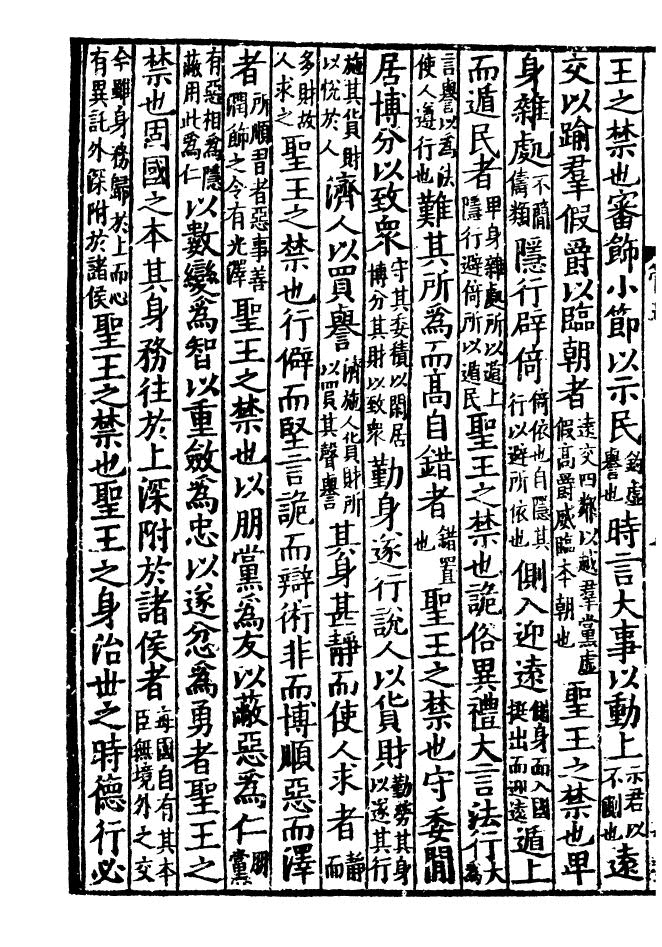 王之禁也審飾小節以示民釣虛譽也時言大事以動上示君以不也遠
交以踰羣假爵以臨朝者遠交四鄰以越羣黨虛假高爵威臨本朝也聖王之禁也卑
身雜處不簡儔類隱行辟倚倚依也自隱其行以避所依也側入迎遠側身而入國挺出而迎遠遁上
而遁民者卑身雜處所以遁上隱行避倚所以遁民聖王之禁也詭俗異禮大言法行大為
言譽以為法使人遵行也難其所為而高自錯者錯置也聖王之禁也守委閒
居博分以致衆守其委積以閑居博分其財以致衆勤身遂行說人以貨財勤勞其身以遂其行
施其貨財以悅於人濟人以買譽濟施人貨財所以買其聲譽其身甚靜而使人求者靜而
多財故人求之聖王之禁也行僻而堅言詭而辯術非而博順惡而澤
者所順習者惡事善潤飾之令有光澤聖王之禁也以朋黨為友以蔽惡為仁朋黨
有惡相為隱蔽用此為仁以數變為智以重斂為忠以遂忿為勇者聖王之
禁也固國之本其身務往於上深附於諸侯者每國自有其本臣無境外之交
今雖身務歸於上而心有異託外深附於諸侯聖王之禁也聖王之身治丗之時德行必